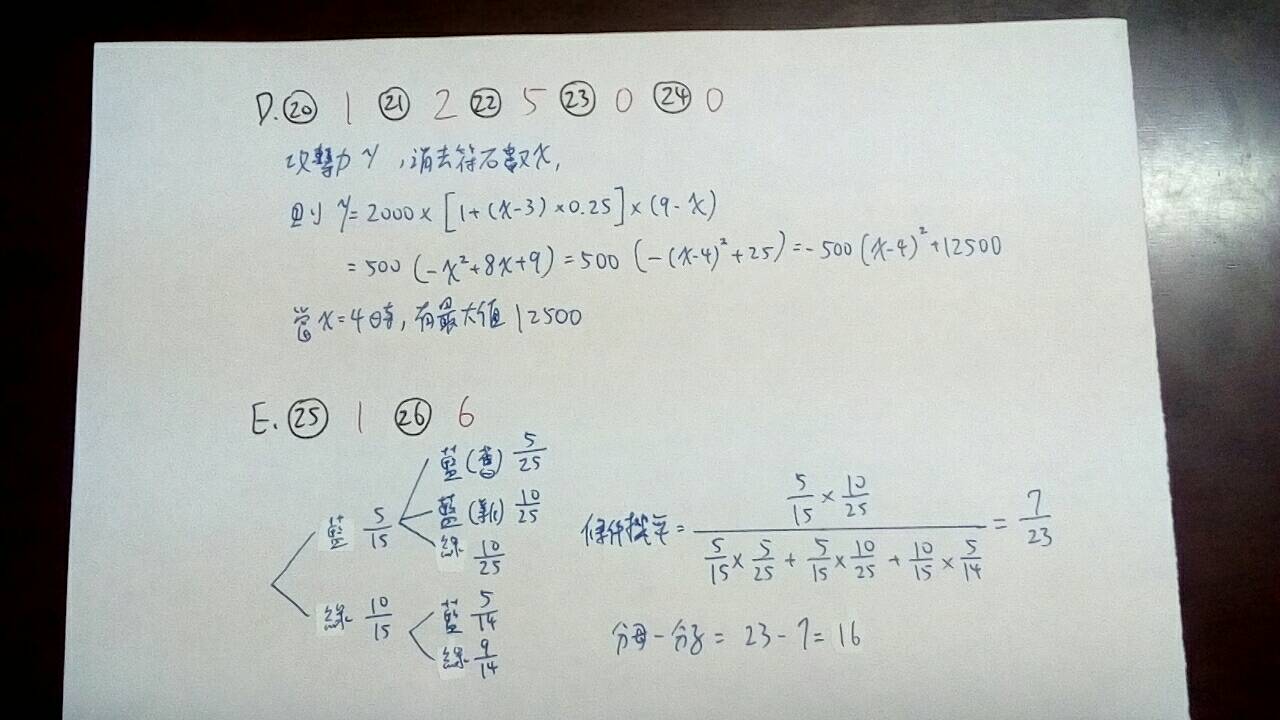 D. ⑳ 1 ㉑ 2 ㉒ 5 ㉓ 0 ㉔ 0
攻擊力 y,消去符石數 x,
則 y = 2000 × [1 + (x-3) × 0.25] × (9 - x)
= 500 (-x² + 8x + 9) = 500 (-(x-4)² + 25) = -500 (x-4)² + 12500
當 x = 4 時, 有最大值 12500
E. ㉕ 1 ㉖ 6
藍 5/15
藍(舊) 5/25
藍(新) 10/25
綠 10/25
綠 10/15
藍 5/14
綠 9/14
條件機率 = (5/15 × 10/25) / (5/15 × 5/25 + 5/15 × 10/25 + 10/15 × 5/14) = 7/23
分母 - 分子 = 23 - 7 = 16